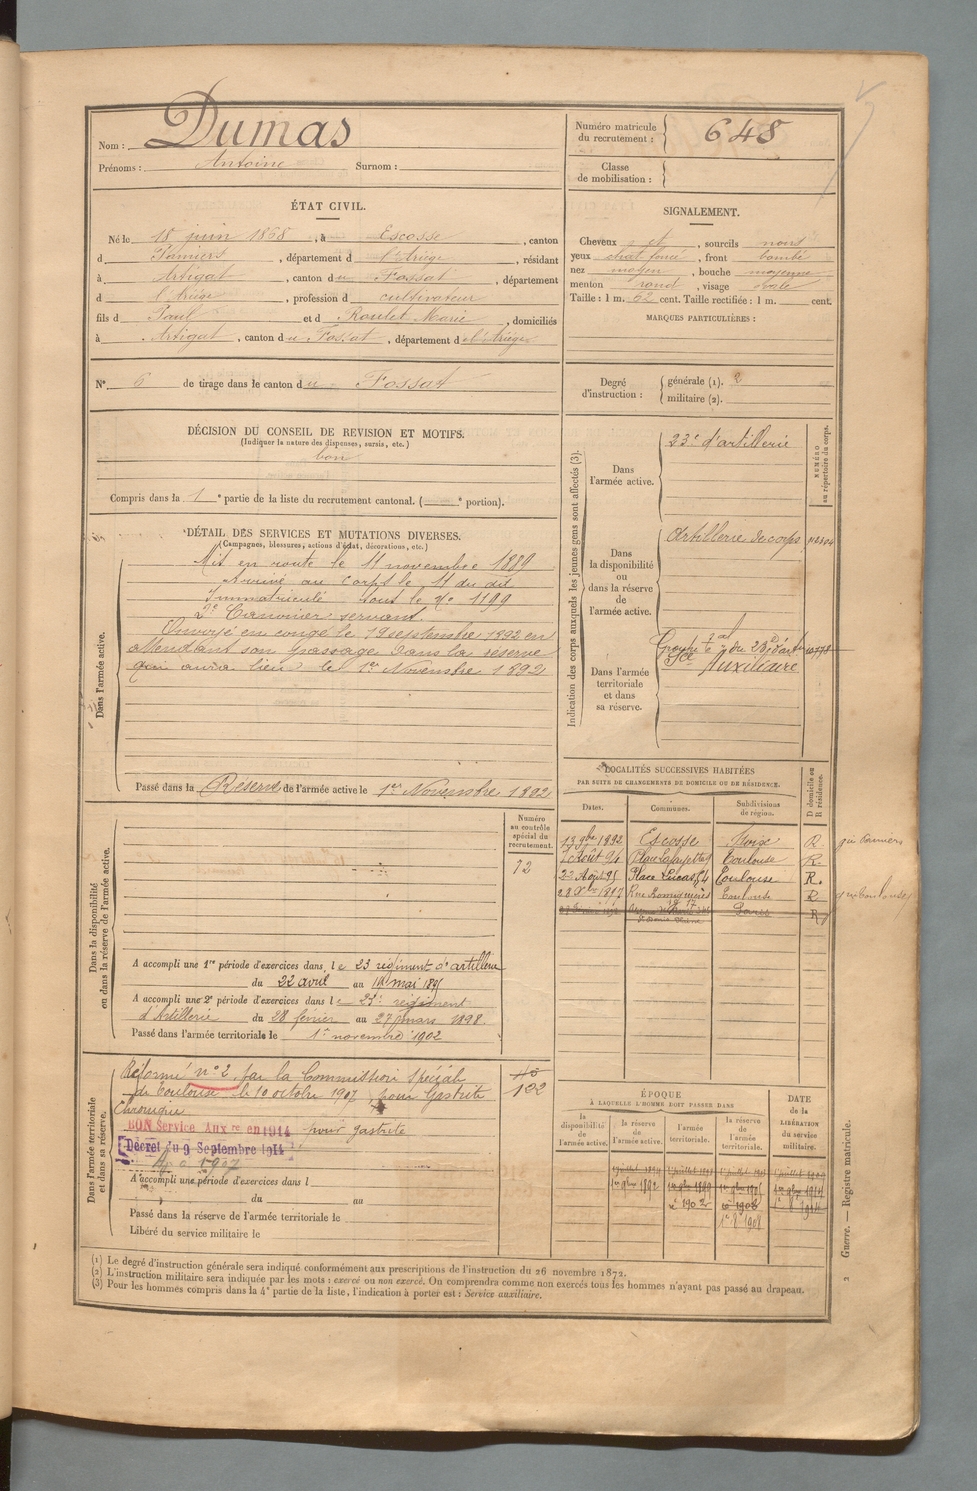 Nom : Dumas
Prénoms : Antoine Surnom :
Numéro matricule du recrutement : 648
Classe de mobilisation :
ÉTAT CIVIL.
Né le 18 juin 1868, à Escosse, canton
d Pamiers, département d l'Ariège, résidant
à Artigat, canton du Fossat, département
d l'Ariège, profession d cultivateur
fils d Paul et d Roulet Marie, domiciliés
à Artigat, canton du Fossat, département de l'Ariège
N° 6 de tirage dans le canton du Fossat
SIGNALEMENT.
Cheveux et, sourcils noirs
yeux chat foncé, front bombé
nez moyen, bouche moyenne
menton rond, visage ovale
Taille : 1 m. 62 cent. Taille rectifiée : 1 m. cent.
MARQUES PARTICULIÈRES :
Degré d'instruction : générale (1). 2
militaire (2).
DÉCISION DU CONSEIL DE REVISION ET MOTIFS.
(Indiquer la nature des dispenses, sursis, etc.)
bon
Compris dans la 1e partie de la liste du recrutement cantonal. ( e portion).
DÉTAIL DES SERVICES ET MUTATIONS DIVERSES.
(Campagnes, blessures, actions d'éclat, décorations, etc.)
Dans l'armée active.
Mis en route le 11 novembre 1889
Arrivé au corps le 11 du dit
Immatriculé sous le No 1199
2e Canonier servant.
Envoyé en congé le 19 septembre 1892 en
attendant son passage dans la réserve
qui aura lieu le 1er Novembre 1892
Passé dans la Réserve de l'armée active le 1er Novembre 1892
Indication des corps auxquels les jeunes gens sont affectés (3).
NUMÉRO au répertoire du corps.
Dans l'armée active. 23e d'artillerie
Dans la disponibilité ou dans la réserve de l'armée active. Artillerie du corps
Dans l'armée territoriale et dans sa réserve. du 23e d'art
Auxiliaire
LOCALITÉS SUCCESSIVES HABITÉES
PAR SUITE DE CHANGEMENTS DE DOMICILE OU DE RÉSIDENCE.
Dates. Communes. Subdivisions de région. D domicile ou R résidence.
13 9bre 1892 Escosse Foix R
Août 94 Place Lafayette Toulouse R.
22 Août 95 Place Lucas 54 Toulouse R.
28 Rue 17 Toulouse R
Paris R
Dans la disponibilité ou dans la réserve de l'armée active.
Numéro au contrôle spécial du recrutement.
12
A accompli une 1re période d'exercices dans le 23 régiment d'artillerie
du 22 avril au mai 1895
A accompli une 2e période d'exercices dans le 23e régiment
d'Artillerie du 28 février au 27 mars 1898.
Passé dans l'armée territoriale le 1er novembre 1902
Dans l'armée territoriale et dans sa réserve.
Réformé n° 2, par la Commission Spéciale
de Toulouse le 10 octobre 1907, pour Gastrite
Chronique
122
BON Service Auxre en 1914 pour gastrite
Décret du 9 Septembre 1914
1907
A accompli une période d'exercices dans l
du au
Passé dans la réserve de l'armée territoriale le
Libéré du service militaire le
ÉPOQUE
À LAQUELLE L'HOMME DOIT PASSER DANS
la disponibilité de l'armée active. la réserve de l'armée active. l'armée territoriale. la réserve de l'armée territoriale.
DATE de la LIBÉRATION du service militaire.
1er 9bre 1892
1902 1908
1908
(1) Le degré d'instruction générale sera indiqué conformément aux prescriptions de l'instruction du 26 novembre 1872.
(2) L'instruction militaire sera indiquée par les mots : exercé ou non exercé. On comprendra comme non exercés tous les hommes n'ayant pas passé au drapeau.
(3) Pour les hommes compris dans la 4e partie de la liste, l'indication à porter est : Service auxiliaire.
2 Guerre. — Registre matricule.